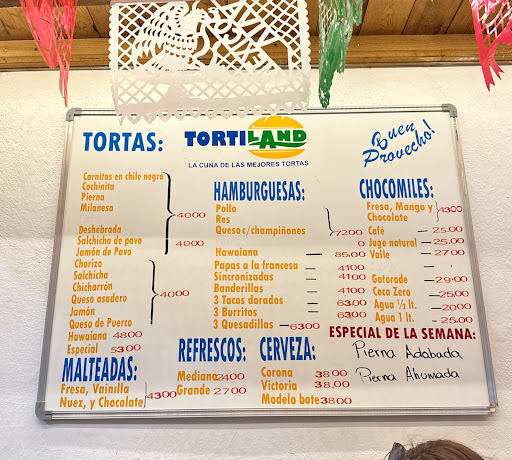 TORTAS:
Carnitas en chile negro
Cochinita
Pierna
Milanesa
4000
Deshebrada
Salchicha de pavo
Jamón de Pavo
4000
Chorizo
Salchicha
Chicharrón
Queso asadero
Jamón
Queso de Puerco
4000
Hawaiana 4800
Especial 5300
MALTEADAS:
Fresa, Vainilla
Nuez, y Chocolate
4300
TORTILAND
LA CUNA DE LAS MEJORES TORTAS
HAMBURGUESAS:
Pollo
Res
Queso c/champiñones
7200
0
Hawaiana — 85.00
Papas a la francesa — 4100
Sincronizadas — 4100
Banderillas — 4100
3 Tacos dorados — 6300
3 Burritos — 6300
3 Quesadillas — 6300
REFRESCOS:
Mediano 2400
Grande 2700
CERVEZA:
Corona 38.00
Victoria 38,00
Modelo bote 3800
Buen
Provecho!
CHOCOMILES:
Fresa, Mango y
Chocolate
4300
Café — 25.00
Jugo natural — 25.00
Valle — 2700
Gatorade — 29.00
Coca Zero — 25.00
Agua ½ lt. — 20.00
Agua 1 lt. — 25.00
ESPECIAL DE LA SEMANA:
Pierna Adobada
Pierna Ahumada